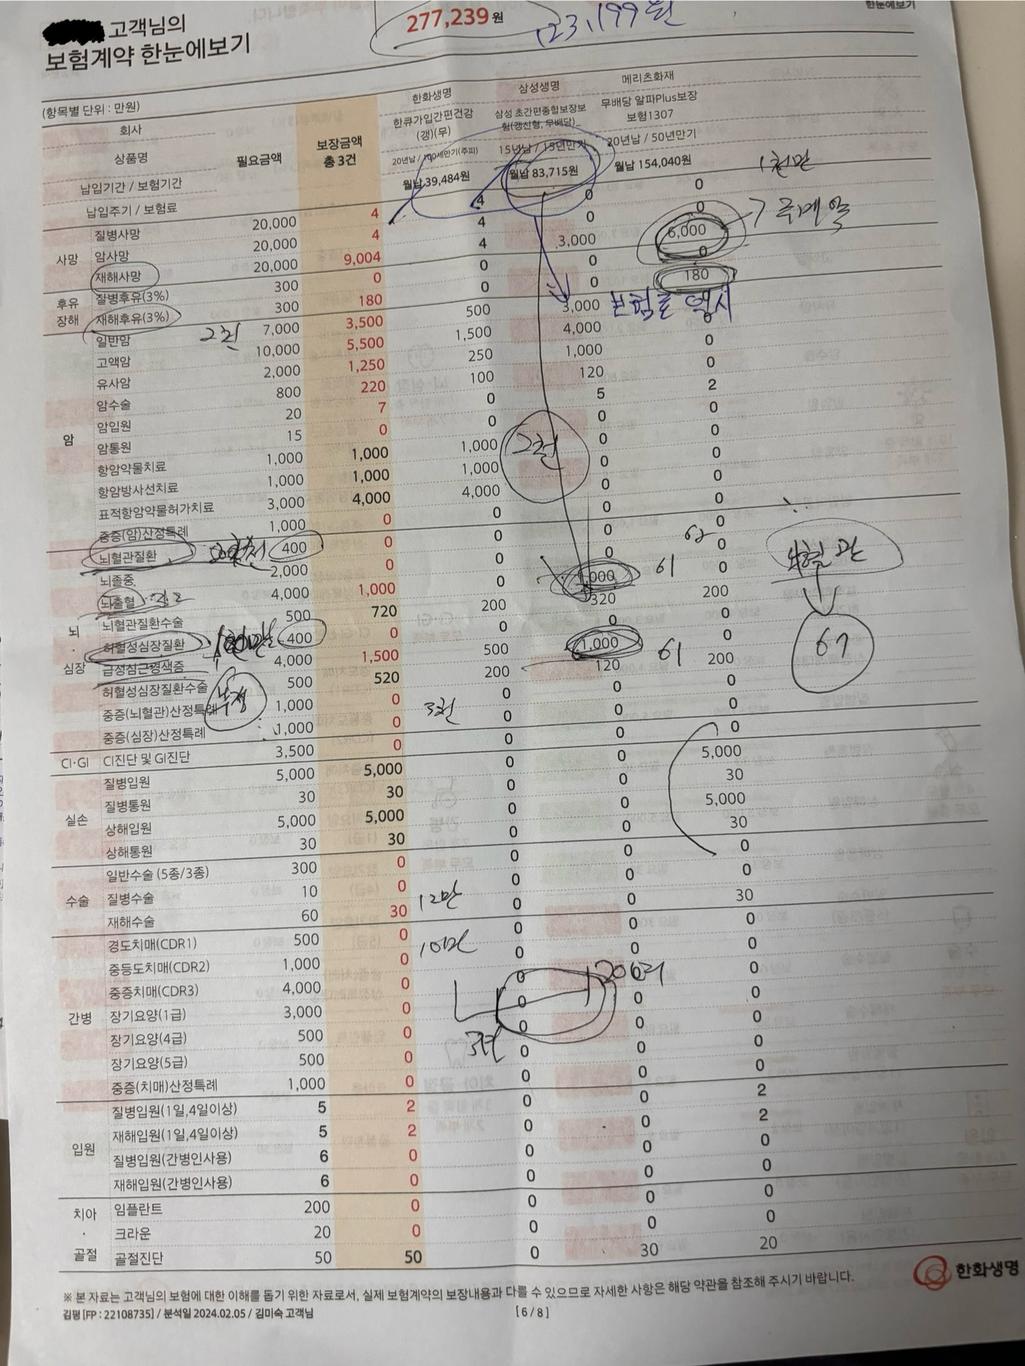 고객님의
보험계약 한눈에보기
277,239원
123,199원
한눈에보기
(항목별 단위 : 만원)
회사 한화생명 삼성생명 메리츠화재
상품명 필요금액 보장금액 총 3건 한큐가입간편건강(갱)(무) 삼성 초간편종합보장보험(갱신형, 무배당)_ 무배당 알파Plus보장보험1307
납입기간 / 보험기간 20년납 / 100세만기(주피) 15년납 / 15년만기 20년납 / 50년만기
납입주기 / 보험료 월납 39,484원 월납 83,715원 월납 154,040원
1천만
사망
질병사망 20,000 4 4 0 0
암사망 20,000 4 4 0 0
재해사망 20,000 9,004 4 3,000 6,000
후유장해
질병후유(3%) 300 0 0 0 0
재해후유(3%) 300 180 0 0 180
암
일반암 2천 7,000 3,500 500 3,000 0
고액암 10,000 5,500 1,500 4,000 0
유사암 2,000 1,250 250 1,000 0
암수술 800 220 100 120 0
암입원 20 7 0 5 2
암통원 15 0 0 0 0
항암약물치료 1,000 1,000 1,000 0 0
항암방사선치료 1,000 1,000 1,000 0 0
표적항암약물허가치료 3,000 4,000 4,000 0 0
중증(암)산정특례 1,000 0 0 0 0
2천
뇌·심장
뇌혈관질환 400 0 0 0 0
뇌졸중 2,000 0 0 0 0
뇌출혈 4,000 1,000 0 1,000 0
뇌혈관질환수술 500 720 200 320 200
허혈성심장질환 400 0 0 0 0
급성심근경색증 4,000 1,500 500 1,000 0
허혈성심장질환수술 500 520 200 120 200
중증(뇌혈관)산정특례 1,000 0 0 0 0
중증(심장)산정특례 1,000 0 0 0 0
61
62
61
67
3천
CI·GI
CI진단 및 GI진단 3,500 0 0 0 0
실손
질병입원 5,000 5,000 0 0 5,000
질병통원 30 30 0 0 30
상해입원 5,000 5,000 0 0 5,000
상해통원 30 30 0 0 30
수술
일반수술 (5종/3종) 300 0 0 0 0
질병수술 10 0 0 0 0
재해수술 60 30 0 0 30
12만
간병
경도치매(CDR1) 500 0 0 0 0
중등도치매(CDR2) 1,000 0 0 0 0
중증치매(CDR3) 4,000 0 0 0 0
장기요양(1급) 3,000 0 0 0 0
장기요양(4급) 500 0 0 0 0
장기요양(5급) 500 0 0 0 0
중증(치매)산정특례 1,000 0 0 0 0
입원
질병입원(1일,4일이상) 5 2 0 0 2
재해입원(1일,4일이상) 5 2 0 0 2
질병입원(간병인사용) 6 0 0 0 0
재해입원(간병인사용) 6 0 0 0 0
치아·골절
임플란트 200 0 0 0 0
크라운 20 0 0 0 0
골절진단 50 50 0 30 20
한화생명
※ 본 자료는 고객님의 보험에 대한 이해를 돕기 위한 자료로서, 실제 보험계약의 보장내용과 다를 수 있으므로 자세한 사항은 해당 약관을 참조해 주시기 바랍니다.
김평 [FP : 22108735] / 분석일 2024.02.05 / 김미숙 고객님
[ 6 / 8 ]